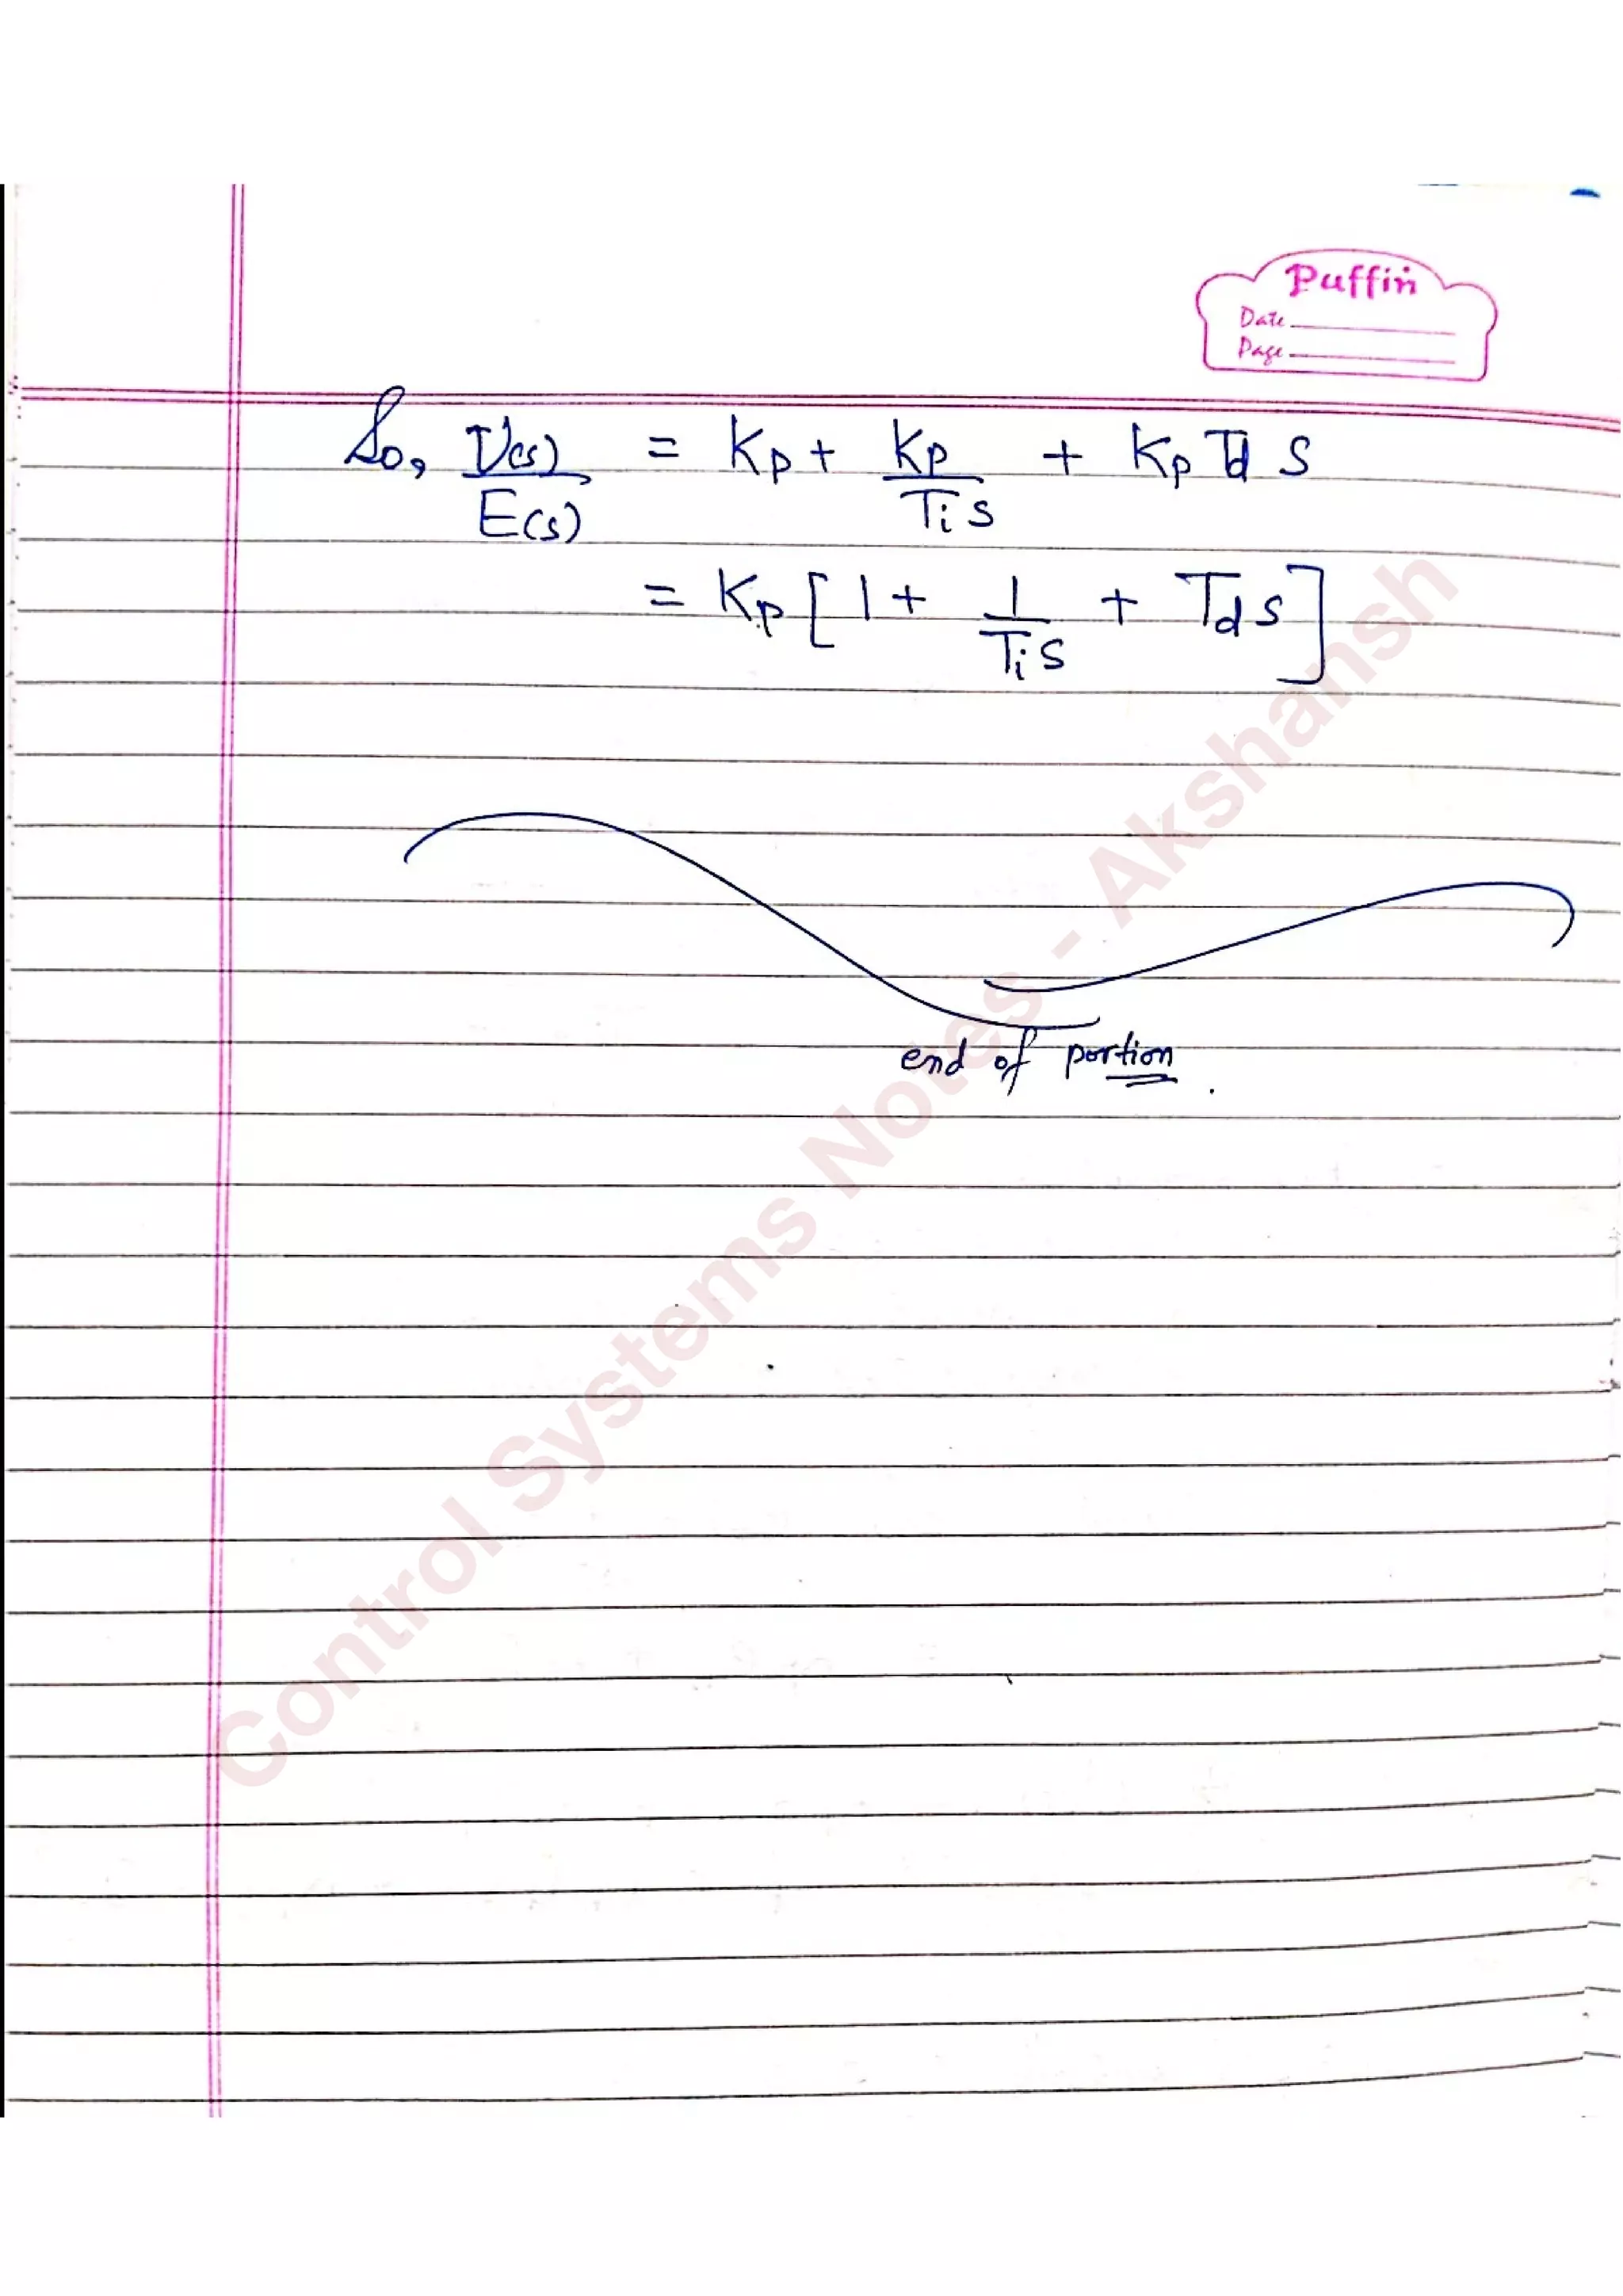 Puffin
Date
Page
So, U(s)/E(s) = Kp + Kp/Tis + KpTd s
= Kp [ 1 + 1/Tis + Tds ]
end of portion.
Control Systems Notes - Akshansh